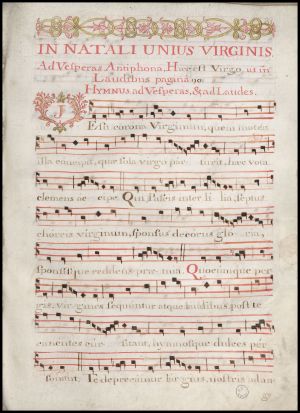 IN NATALI UNIUS VIRGINIS.
Ad Vesperas Antiphona, Hæc est Virgo, ut in
Laudibus pagina 90.
HYMNUS ad Vesperas, & ad Laudes.
JEsu corona Virginum, quem mater
illa concepit, quæ sola virgo par turit, hæc vota
clemens ac cipe. Qui pascis inter li lia, septus
choreis virginum, sponsus decorus glo ria,
sponsisque reddens præ mia. Quocumque per
gis, virgines sequuntur atque laudibus, post te
canentes cur sitant, hymnosque dulces per
sonant. Te deprecamur largius, nostris adau